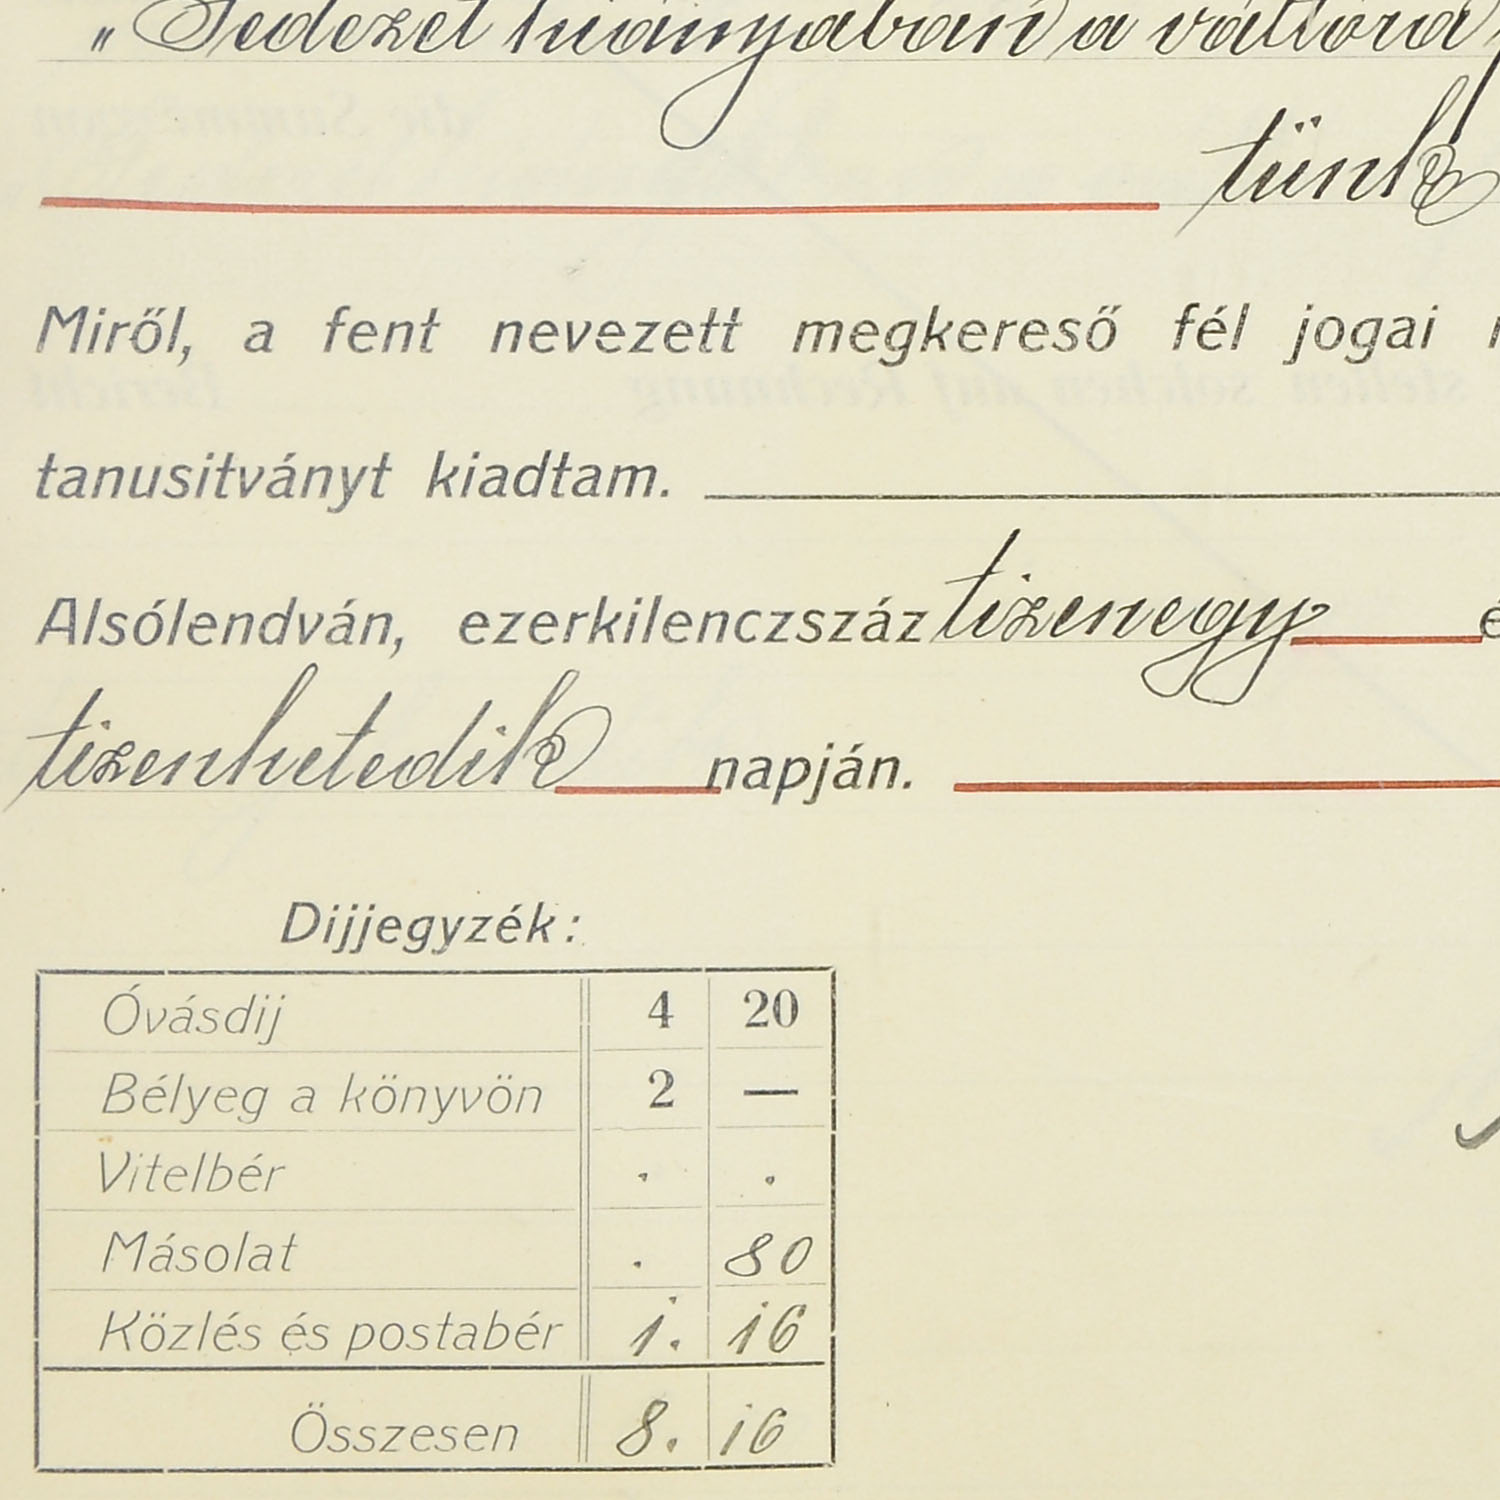 „Fedezet hiányában a váltóra
tünk
Miről, a fent nevezett megkereső fél jogai
tanusitványt kiadtam.
Alsólendván, ezerkilenczszáz tizenegy é
tizenhetedik napján.
Dijjegyzék:
Óvásdij 4 20
Bélyeg a könyvön 2 —
Vitelbér . .
Másolat . 80
Közlés és postabér 1. 16
Összesen 8. 16